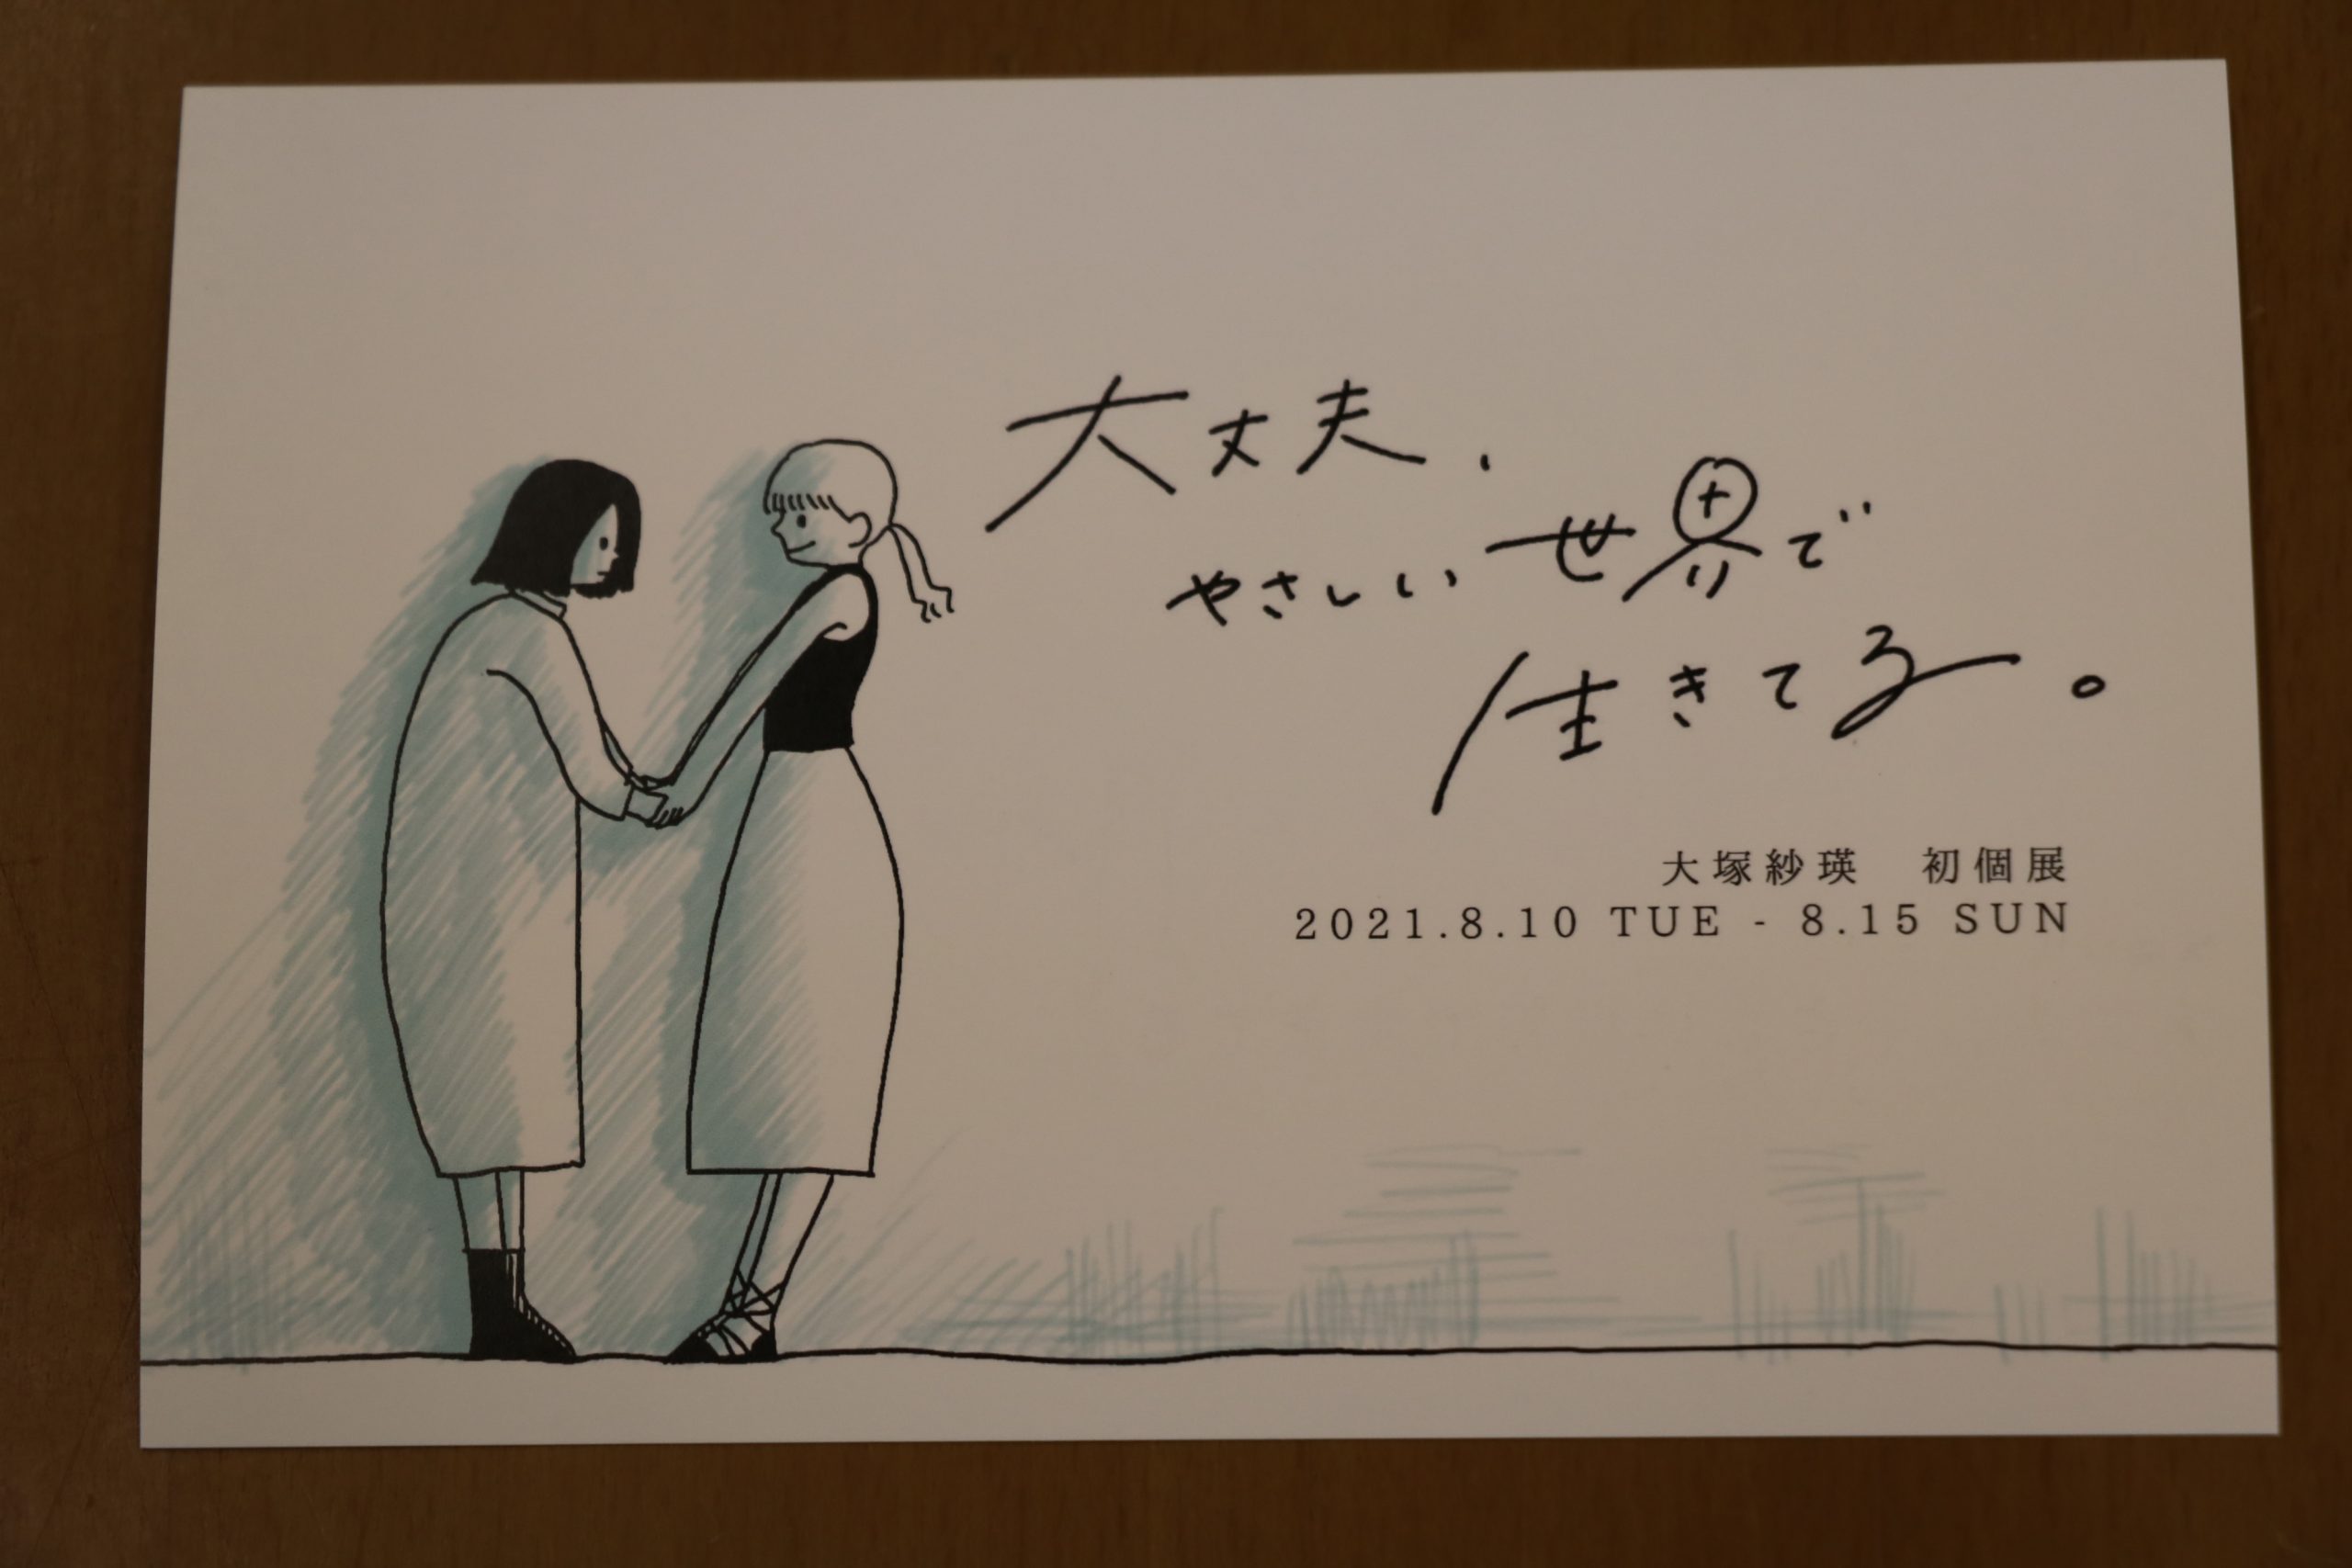 大丈夫、
やさしい世界で
生きてる。
大塚紗瑛　初個展
2021.8.10 TUE - 8.15 SUN